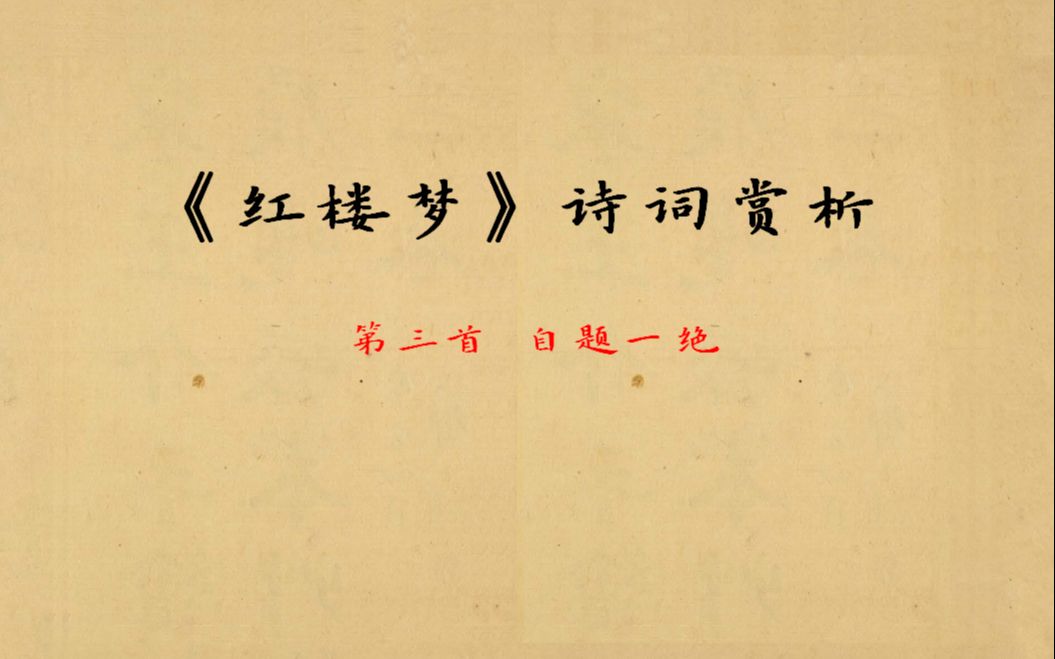 《红楼梦》诗词赏析
第三首 自题一绝